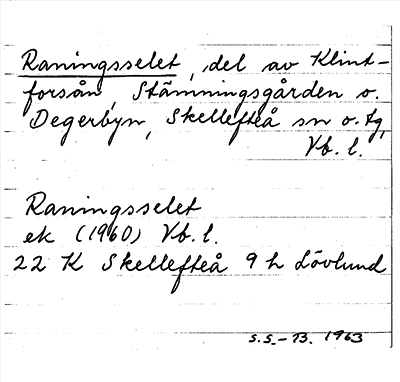 Raningsselet, del av Klint-
forsån, Stämningsgården o.
Degerbyn, Skellefteå sn o. tg,
Vb. l.
Raningsselet
ek (1960) Vb. l.
22 K Skellefteå 9 h Lövlund
S.S.-B. 1963